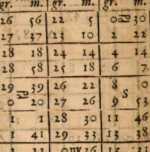 gr. m. gr. m. gr. m.
26 56 22 5 0 30
27 37 23 10 1 22
28 18 24 14 4 14
28 58 25 18 6 7
29 39 26 22 8 0
0 20 27 26 9 53
1 1 28 30 11 46
1 41 29 33 13 38